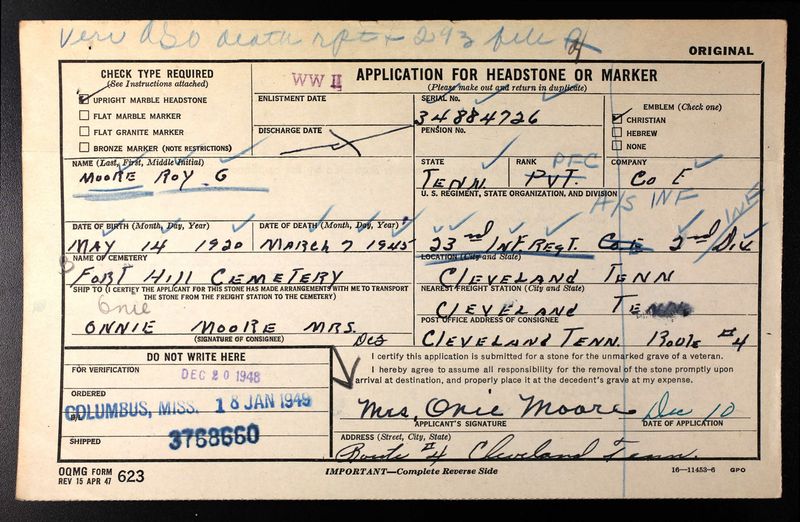 Veri AGO death rpt + 293 file
ORIGINAL
CHECK TYPE REQUIRED
(See Instructions attached)
UPRIGHT MARBLE HEADSTONE
FLAT MARBLE MARKER
FLAT GRANITE MARKER
BRONZE MARKER (NOTE RESTRICTIONS)
WW II
APPLICATION FOR HEADSTONE OR MARKER
(Please make out and return in duplicate)
ENLISTMENT DATE
DISCHARGE DATE
SERIAL No.
34884726
PENSION No.
EMBLEM (Check one)
CHRISTIAN
HEBREW
NONE
NAME (Last, First, Middle Initial)
MOORE ROY G
STATE
TENN
RANK
PFC
PVT.
COMPANY
Co E
U. S. REGIMENT, STATE ORGANIZATION, AND DIVISION
A/S INF
INF
23rd INF. REGT. Co E 2nd Div
DATE OF BIRTH (Month, Day, Year)
MAY 14 1920
DATE OF DEATH (Month, Day, Year)
MARCH 7 1945
NAME OF CEMETERY
FORT HILL CEMETERY
LOCATION (City and State)
CLEVELAND TENN
SHIP TO (I CERTIFY THE APPLICANT FOR THIS STONE HAS MADE ARRANGEMENTS WITH ME TO TRANSPORT
THE STONE FROM THE FREIGHT STATION TO THE CEMETERY)
Onie
ONNIE MOORE MRS.
(SIGNATURE OF CONSIGNEE)
NEAREST FREIGHT STATION (City and State)
CLEVELAND TENN
POST OFFICE ADDRESS OF CONSIGNEE
CLEVELAND TENN. Route #4
DO NOT WRITE HERE
FOR VERIFICATION
DEC 20 1948
ORDERED
B/L
COLUMBUS, MISS. 18 JAN 1949
3768660
SHIPPED
I certify this application is submitted for a stone for the unmarked grave of a veteran.
I hereby agree to assume all responsibility for the removal of the stone promptly upon
arrival at destination, and properly place it at the decedent's grave at my expense.
Mrs. Onie Moore Dec 10
APPLICANT'S SIGNATURE
DATE OF APPLICATION
ADDRESS (Street, City, State)
Route #4 Cleveland Tenn.
OQMG FORM
REV 15 APR 47 623
IMPORTANT—Complete Reverse Side
16—11453-6 GPO